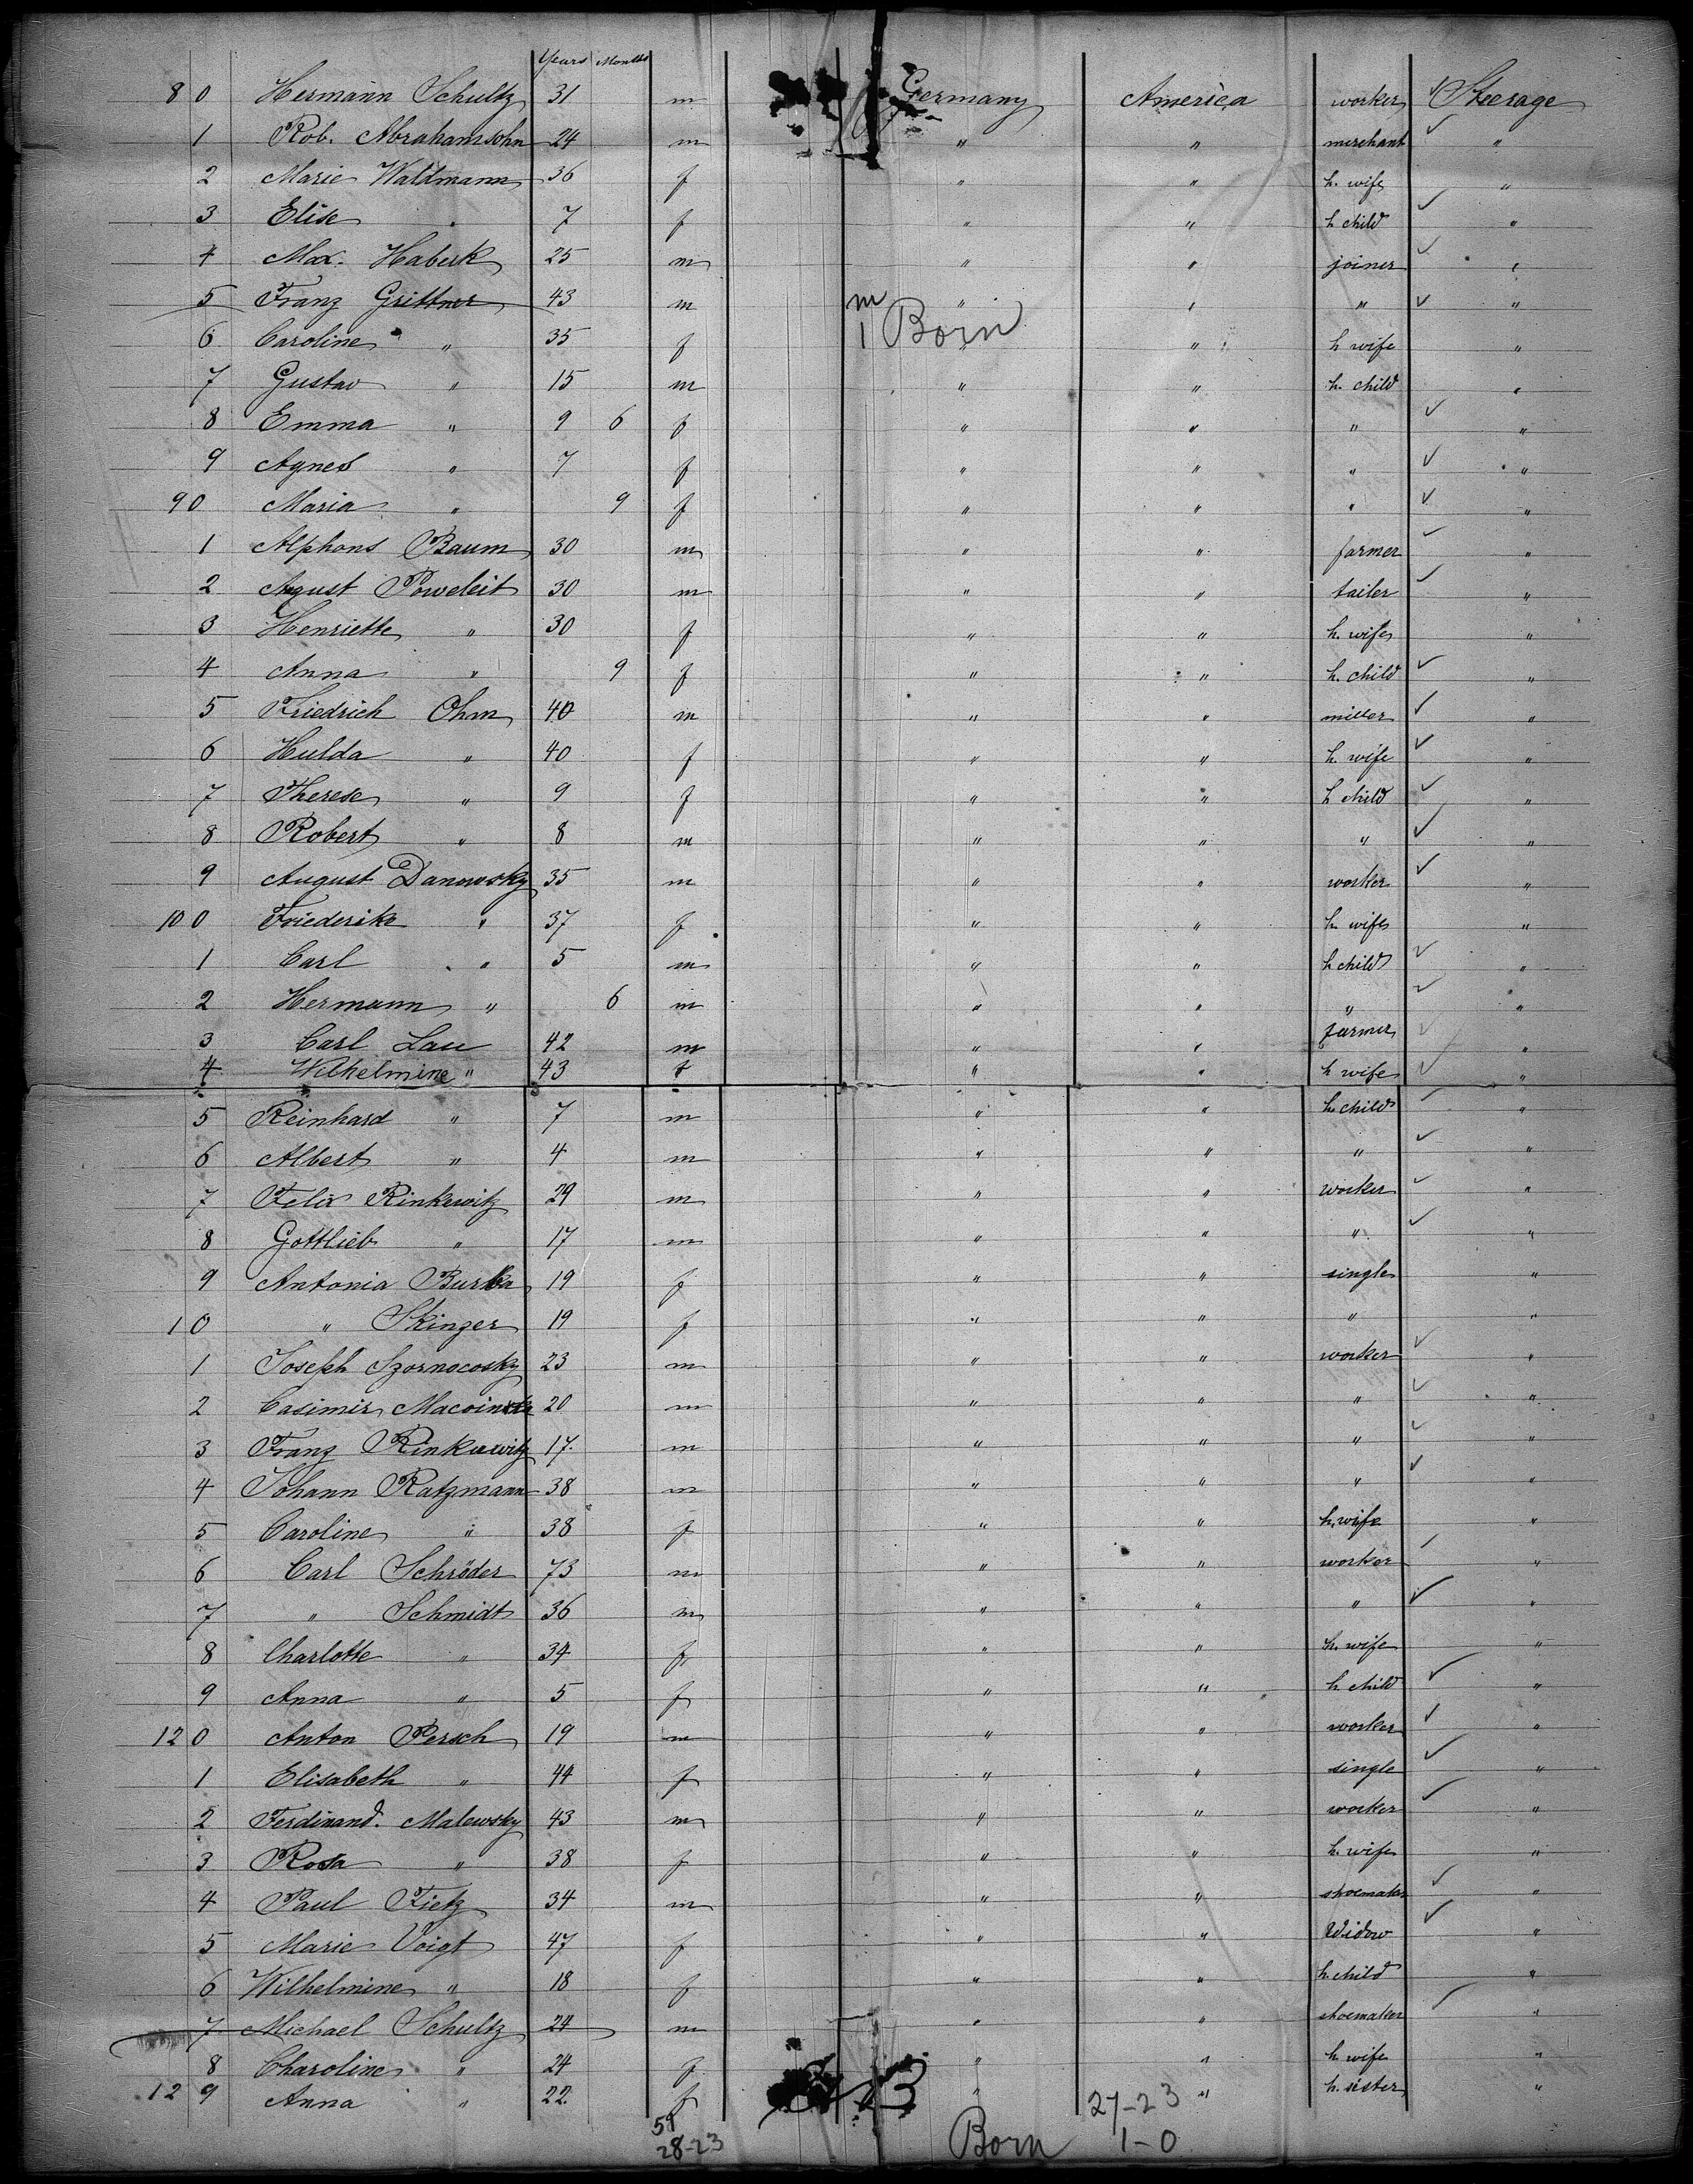 Years Months
80 Hermann Schultz 31 m Germany America worker ✓ Steerage
1 Rob. Abrahamsohn 24 m " " merchant ✓ "
2 Marie Waldmann 36 f " " h. wife "
3 Elise " 7 f " " h child ✓ "
4 Max. Haberk 25 m " " joiner ✓ "
5 Franz Grittner 43 m m " " " ✓ "
6 Caroline " 35 f 1 Born " " h wife "
7 Gustav " 15 m " " h. child "
8 Emma " 9 6 f " " " ✓ "
9 Agnes " 7 f " " " ✓ "
90 Maria " 9 f " " " ✓ "
1 Alphons Baum 30 m " " farmer ✓ "
2 August Poweleit 30 m " " tailer ✓ "
3 Henriette " 30 f " " h. wife "
4 Anna " 9 f " " h. child ✓ "
5 Friedrich Ohm 40 m " " miller ✓ "
6 Hulda " 40 f " " h. wife ✓ "
7 Therese " 9 f " " h child ✓ "
8 Robert " 8 m " " " ✓ "
9 August Danowsky 35 m " " worker ✓ "
100 Friederike " 37 f " " h. wife "
1 Carl " 5 m " " h child ✓ "
2 Hermann " 6 m " " " ✓ "
3 Carl Lau 42 m " " farmer ✓ "
4 Wilhelmine " 43 f " " h wife ✓ "
5 Reinhard " 7 m " " h. child ✓ "
6 Albert " 4 m " " " ✓ "
7 Felix Rinkewitz 29 m " " worker ✓ "
8 Gottlieb " 17 m " " " ✓ "
9 Antonia Burka 19 f " " single "
10 " Skinger 19 f " " " "
1 Joseph Szornocosky 23 m " " worker ✓ "
2 Casimir 20 m " " " ✓ "
3 Franz Rinkewitz 17. m " " " ✓ "
4 Johann Ratzmann 38 m " " " ✓ "
5 Caroline " 38 f " " h. wife "
6 Carl Schröder 73 m " " worker ✓ "
7 " Schmidt 36 m " " " ✓ "
8 Charlotte " 34 f " " h. wife "
9 Anna " 5 f " " h child ✓ "
120 Anton Persch 19 m " " worker ✓ "
1 Elisabeth " 44 f " " single ✓ "
2 Ferdinand. Malewsky 43 m " " worker ✓ "
3 Rosa " 38 f " " h. wife "
4 Paul Fietz 34 m " " shoemaker ✓ "
5 Marie Voigt 47 f " " Widow ✓ "
6 Wilhelmine " 18 f " " h. child "
7 Michael Schultz 24 m " " shoemaker ✓ "
8 Charoline " 24 f " " h wife "
129 Anna " 22. f " " h. sister "
27-23
28-23 Born 1-0